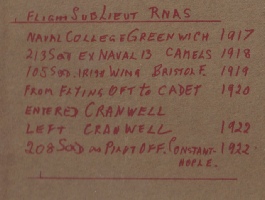 FLIGHT SUB LIEUT RNAS
NAVAL COLLEGE GREENWICH 1917
213 SQD EX NAVAL 13 CAMELS 1918
105 SQD. IRISH WING BRISTOL F. 1919
FROM FLYING OFF to CADET 1920
ENTERED CRANWELL
LEFT CRANWELL 1922
208 SQD as PILOT OFF. CONSTANT- 1922
NOPLE.